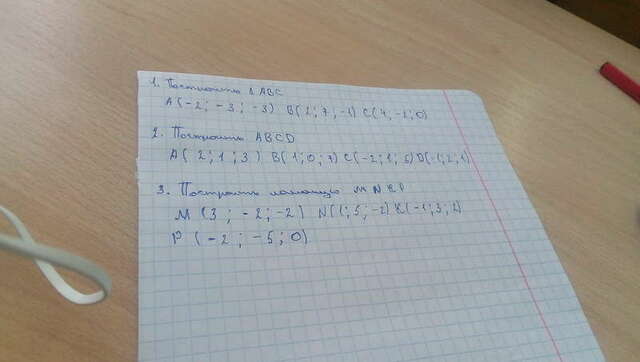 1. Построить Δ ABC
A(-2; -3; -3) B(2; 7; -1) C(4; -2; 0)
2. Построить ABCD
A(2; 1; 3) B(1; 0; 7) C(-2; 1; 5) D(-1; 2; 1)
3. Построить ломаную MNKP
M(3; -2; -2) N(1; 5; -2) K(-1; 3; 2)
P(-2; -5; 0)